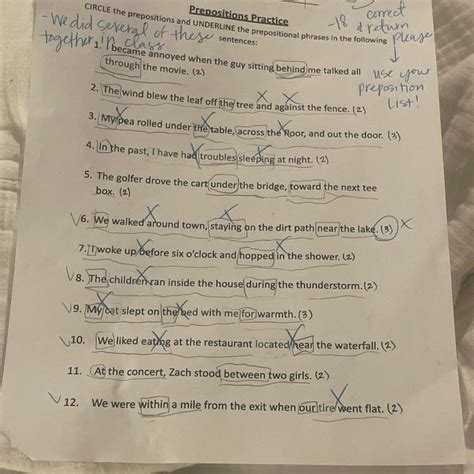 Prepositions Practice
CIRCLE the prepositions and UNDERLINE the prepositional phrases in the following
sentences:
-We did several of these
together in class
-18 correct
& return
please
use your
preposition
list!
1. I became annoyed when the guy sitting behind me talked all
through the movie. (2)
2. The wind blew the leaf off the tree and against the fence. (2)
3. My pea rolled under the table, across the floor, and out the door. (3)
4. In the past, I have had troubles sleeping at night. (2)
5. The golfer drove the cart under the bridge, toward the next tee
box. (2)
6. We walked around town, staying on the dirt path near the lake. (3)
7. I woke up before six o'clock and hopped in the shower. (2)
8. The children ran inside the house during the thunderstorm. (2)
9. My cat slept on the bed with me for warmth. (3)
10. We liked eating at the restaurant located near the waterfall. (2)
11. At the concert, Zach stood between two girls. (2)
12. We were within a mile from the exit when our tire went flat. (2)